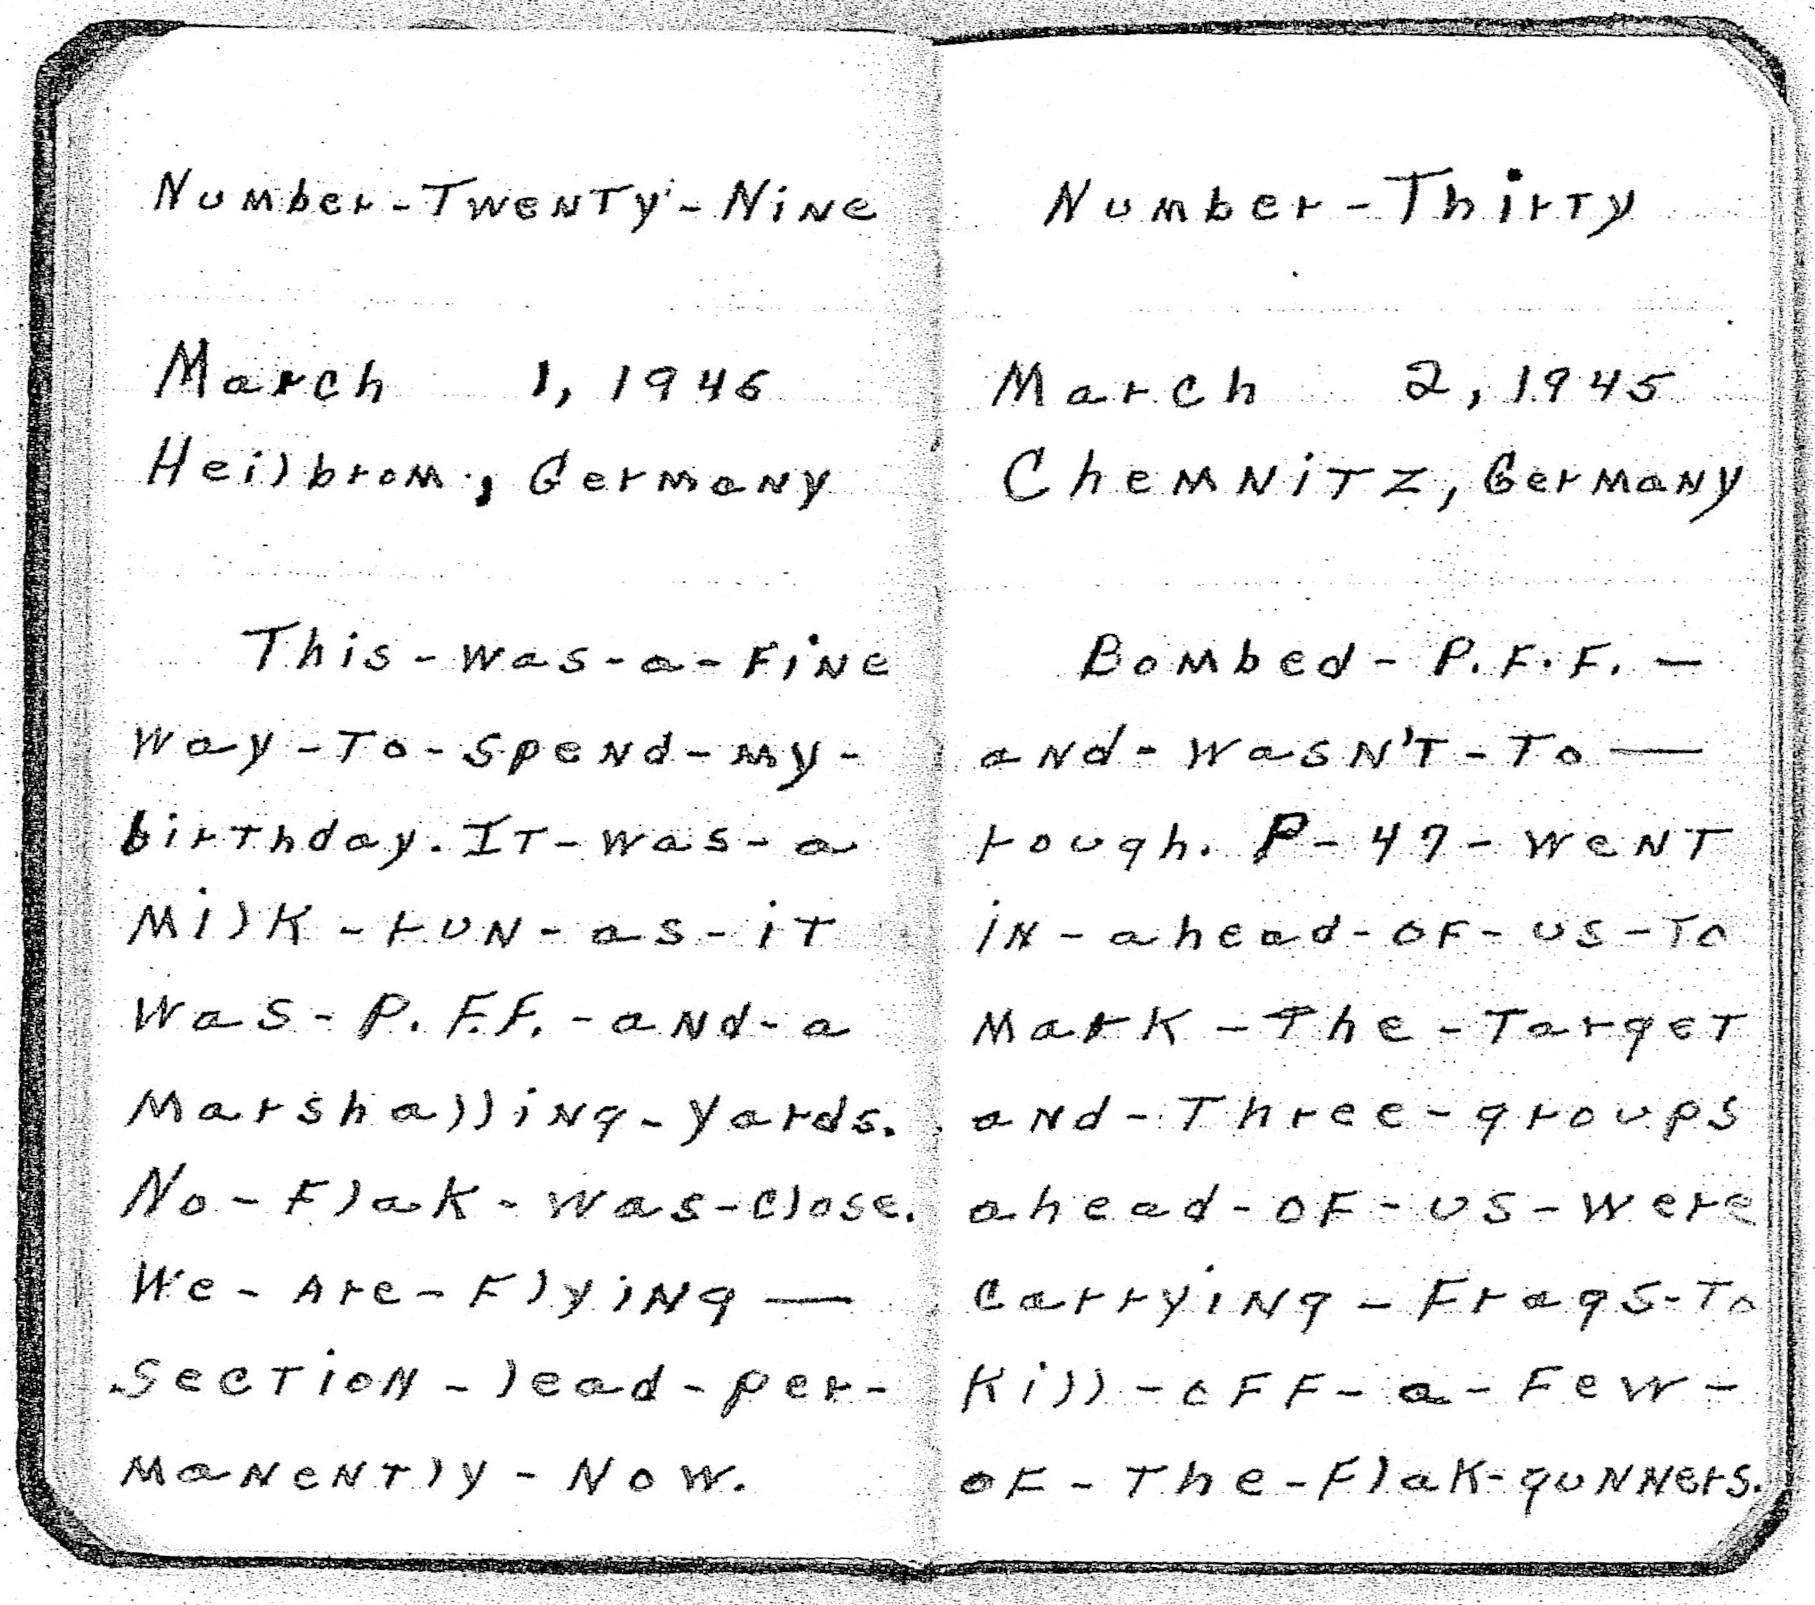 Number-Twenty-Nine
March 1, 1945
Heilbrom, Germany
This-was-a-Fine
way-To-spend-my-
birthday. IT-was-a
Milk-run-as-iT
was-P.F.F.-and-a
Marshalling-yards.
No-Flak-was-close.
We-Are-Flying—
Section-lead-per-
manently-Now.
Number-Thirty
March 2, 1945
Chemnitz, Germany
Bombed-P.F.F.—
and-wasn't-To—
rough. P-47-went
in-ahead-of-us-To
Mark-The-Target
and-Three-groups
ahead-of-us-were
carrying-Frags-To
Kill-off-a-Few-
of-The-Flak-gunners.